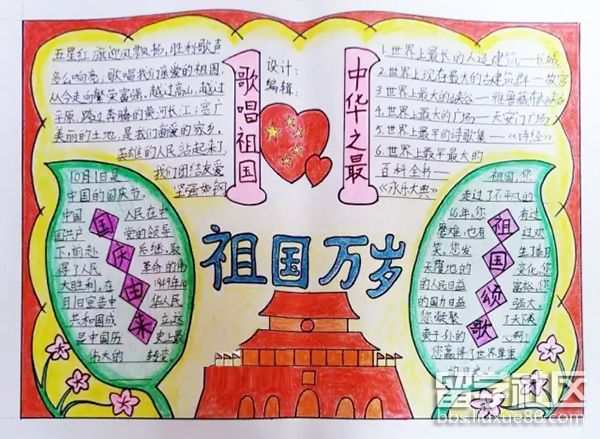 五星红旗迎风飘扬,胜利歌声
多么响亮;歌唱我们亲爱的祖国,
从今走向繁荣富强。越过高山,越过
平原,跨过奔腾的黄河长江;宽广
美丽的土地,是我们亲爱的家乡,
英雄的人民站起来了
我们团结友爱
坚强如钢
歌唱祖国
设计:
编辑:
中华之最
1.世界上最长的人造建筑——长城
2.世界上现存最大的古建筑群——故宫
3.世界上最大的峡谷——雅鲁藏布大峡谷
4.世界上最大的广场——天安门广场
5.世界上最早的诗歌集——《诗经》
6.世界上最早最大的
百科全书——
《永乐大典》
10月1日是
中国的国庆节,
中国 人民在中
国共产 党的领导
下,前赴 后继,取
得了人民 革命的伟
大胜利,在 1949年10
月1日宣告中 华人民
共和国成 立,这
是中国历 史上最
伟大的 转变
国庆由来
祖国万岁
祖国,您
走过了不平凡的
66年,您 有过
磨难,也有 过欢
笑,您发 生了日月
天隆地的 变化,您
的人民日益 富裕,您
的国力日益 强大,
您凝聚 了天下炎
黄子孙的 心啊!
您赢得了世界尊重
的目光
祖国颂歌
留学社区
bbs.liuxue86.com